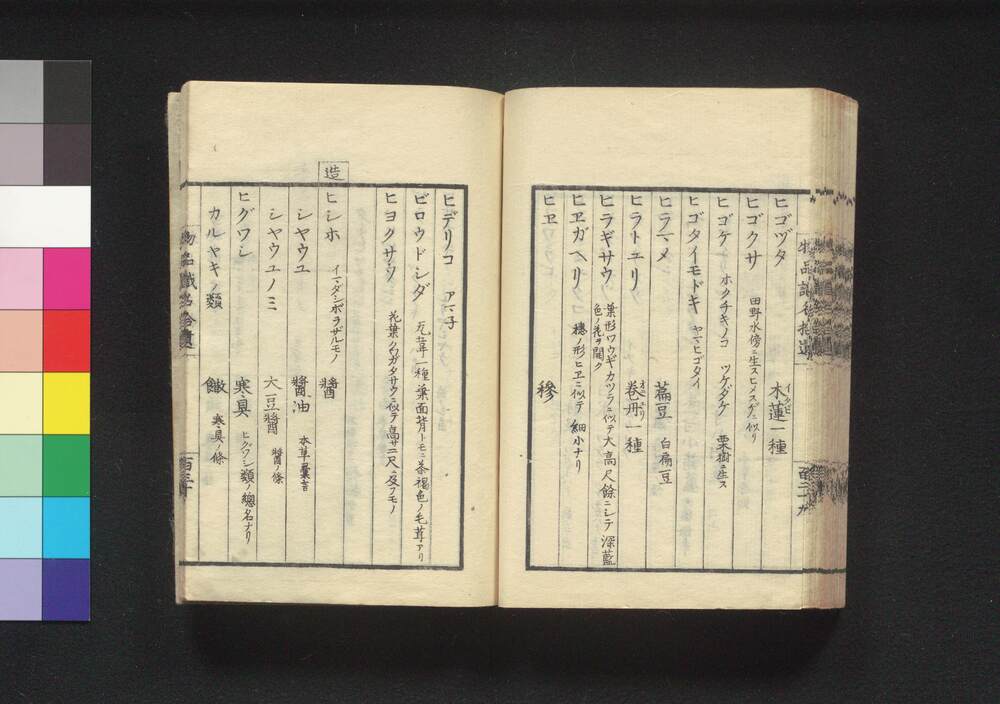 ヒゴヅタ 木蓮一種 イタビ
ヒゴクサ 田野水傍ニ生スヒメスゲニ似リ
ヒゴケ ホクチキノコ ツケダケ 栗樹ニ生ス
ヒゴタイモドキ ヤマヒゴタイ
ヒラマメ 藊豆 白扁豆
ヒラトユリ 巻丹一種 オニユリ
ヒラギサウ 葉形ワウギカツラニ似テ大高尺餘ニシテ深藍
色ノ花ヲ開ク
ヒヱガヘリ 穗ノ形ヒヱニ似テ細小ナリ
ヒヱ 穇
ヒデリコ アマ子
ビロウドシダ 石葦一種葉面背トモニ茶褐色ノ毛茸アリ
ヒヨクサウ 花葉クガタサウニ似テ高サ二尺ニ及フモノ
造
ヒシホ イマダシボラザルモノ 醬
シヤウユ 醬油 本草彙言
シヤウユノミ 大豆醬 醬ノ條
ヒグワシ 寒具 ヒグワシ類ノ總名ナリ
カルヤキノ類 糤 寒具ノ條
物品識名拾遺
百三十